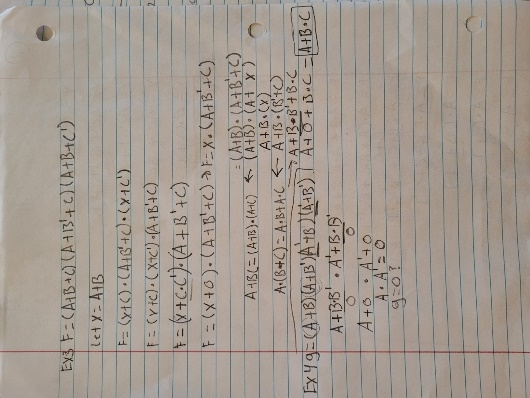 Ex3 F=(A+B+C)(A+B'+C)(A+B+C')
Let X=A+B
F=(X+C)·(A+B'+C)·(X+C')
F=(X+C)·(X+C')·(A+B'+C)
F=(X+C·C')·(A+B'+C)
F=(X+0)·(A+B'+C) → F=X·(A+B'+C)
=(A+B)·(A+B'+C)
A+BC=(A+B)·(A+C) ← (A+B)·(A+X)
A+B·(X)
A·(B+C)=A·B+A·C ← A+B·(B'+C)
→ A+B·B'+B·C
A+0+B·C = A+B·C
Ex4 g=(A+B)(A+B')(A'+B)(A'+B')
A+B·B'·A'+B·B'
0 0
A+0·A'+0
A·A'=0
g=0?